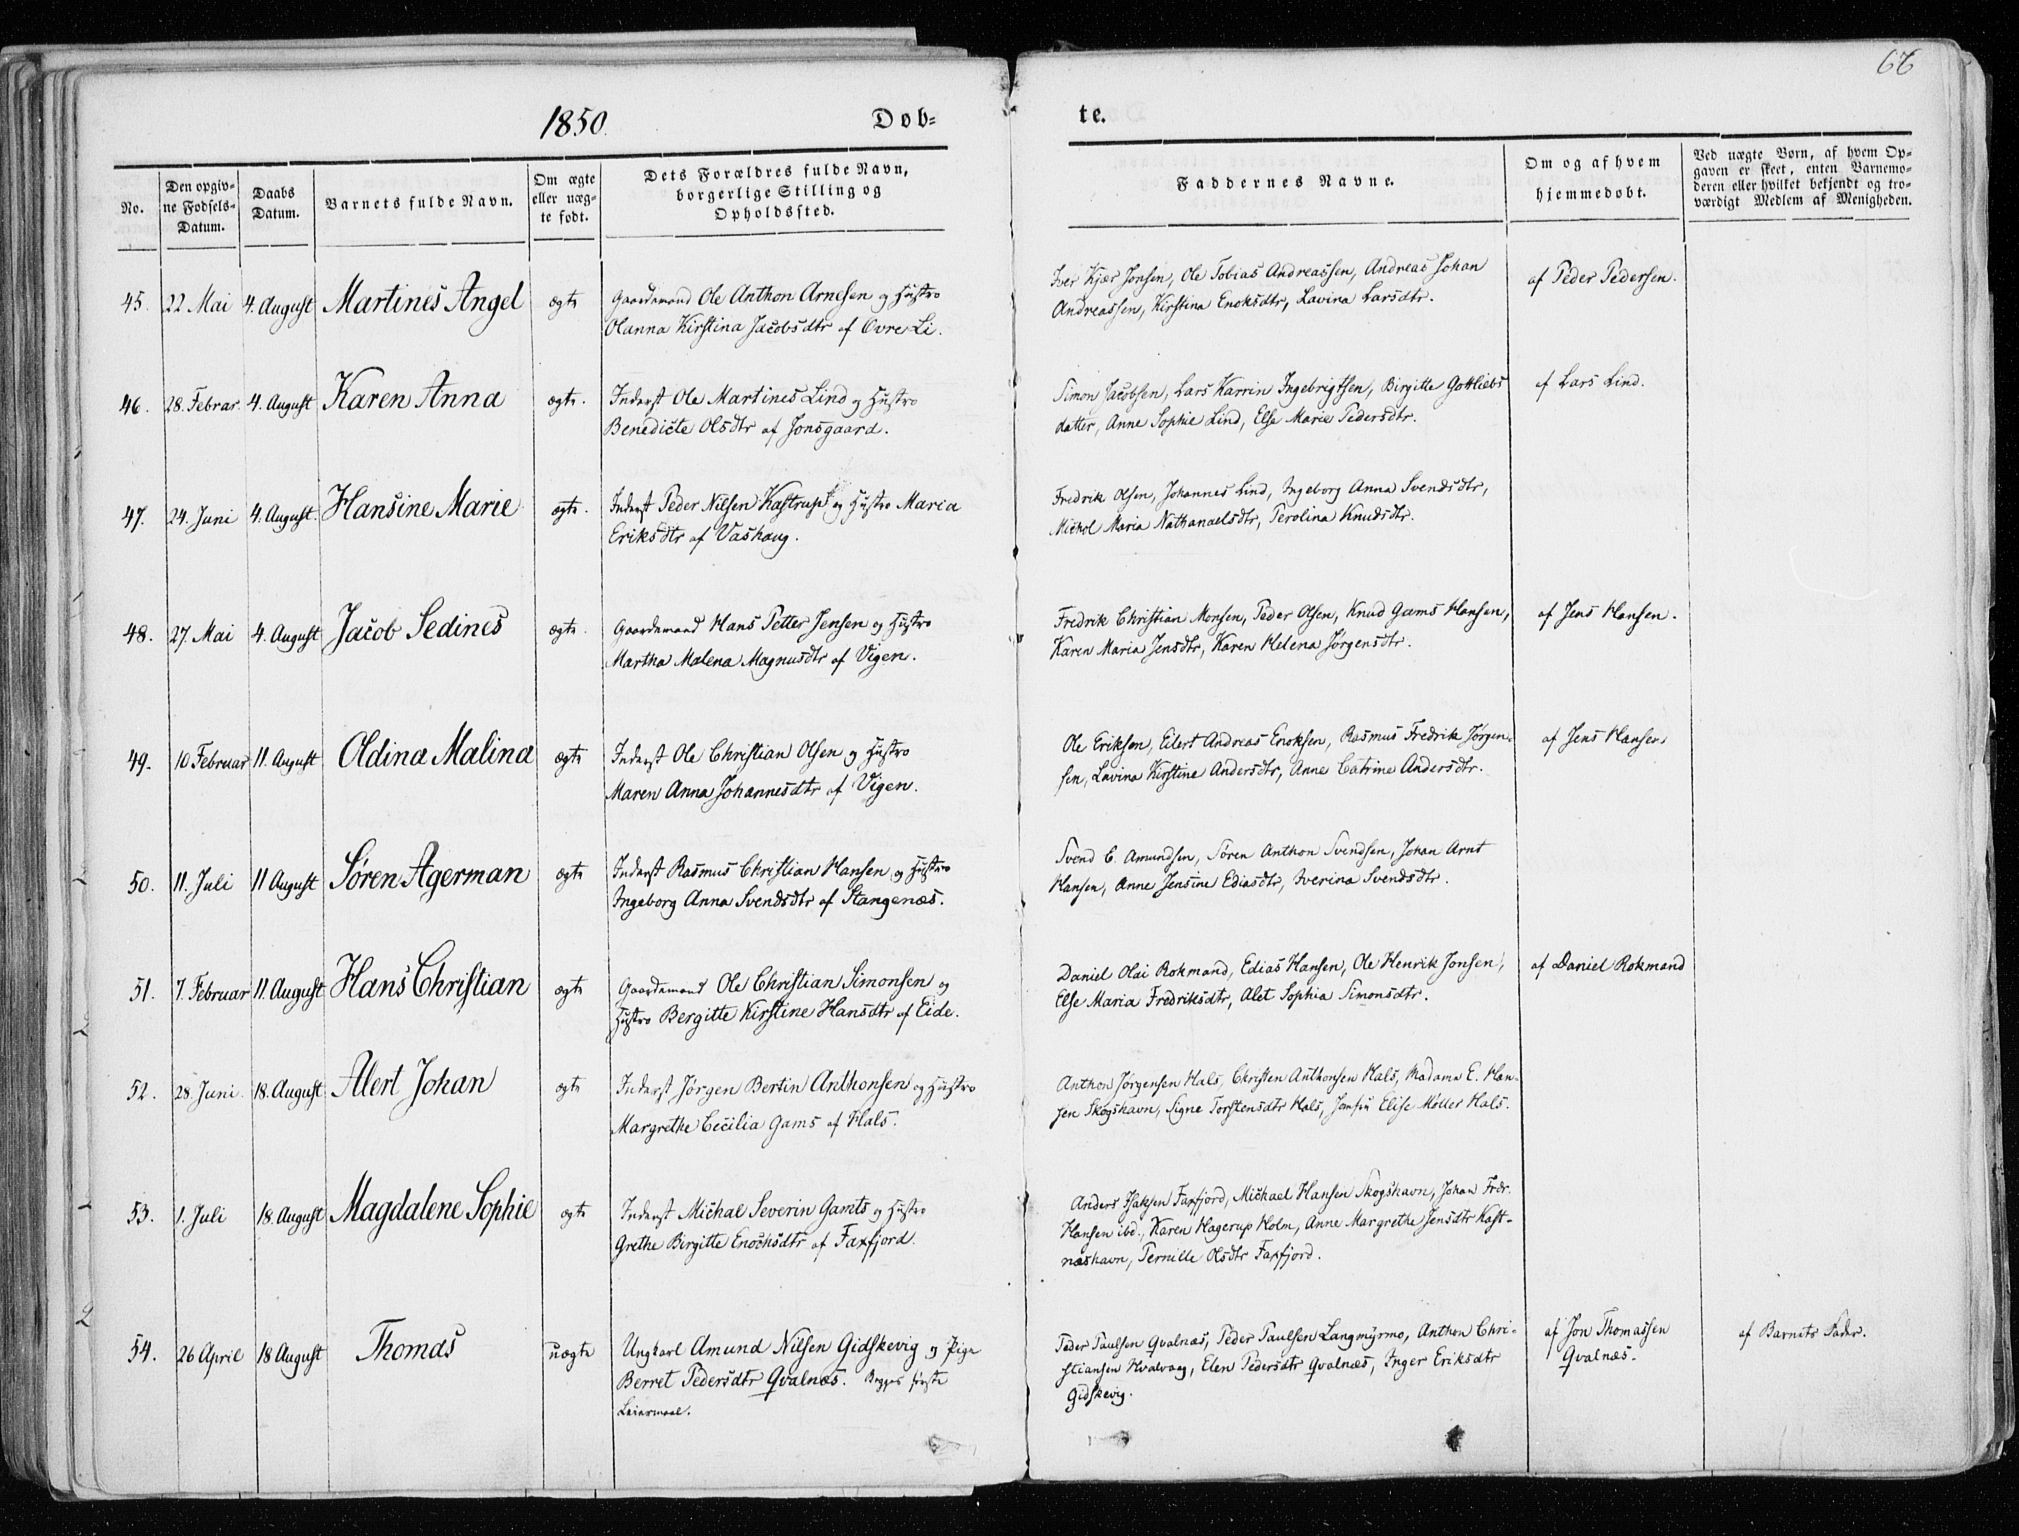 66
1850.
Døb-
te.
No.
Den opgiv-
ne Fødsels-
Datum.
Daabs
Datum.
Barnets fulde Navn.
Om ægte
eller uæg-
te født.
Dets Forældres fulde Navn,
borgerlige Stilling og
Opholdssted.
Faddernes Navne.
Om og af hvem
hjemmedøbt.
Ved uægte Børn, af hvem Op-
gaven er skeet, enten Barnemo-
deren eller hvilket bekjendt og tro-
værdigt Medlem af Menigheden.
45. 22 Mai 4. August Martines Angel ægte
Gaardemand Ole Anthon Arnesen og Hustro
Olanna Kirstina Jacobsdtr af Øvre Li.
Iver Kjær Jonsen, Ole Tobias Andreassen, Andreas Johan
Andreassen, Kirstina Enoksdtr, Lavina Larsdtr.
af Peder Pedersen.
46. 28. Februar 4. August Karen Anna ægte.
Inderst Ole Martines Lind og Hustro
Benedicte Olsdtr af Jonsgaard.
Simon Jacobsen, Lars Karrin Ingebrigtsen, Birgitte Gottliebs
datter, Anne Sophie Lind, Else Marie Pedersdtr.
af Lars Lind.
47. 24. Juni 4. August. Hansine Marie ægte.
Inderst Peder Nilsen Kastrup og Hustro Maria
Eriksdtr af Vashaug.
Fredrik Olsen, Johannes Lind, Ingeborg Anna Svendsdtr,
Michol Maria Nathanaelsdtr, Perolina Knudsdtr.
48. 27. Mai 4. August Jacob Sedines ægte.
Gaardemand Hans Petter Jensen og Hustro
Martha Malena Magnusdtr af Vigen.
Fredrik Christian Monsen, Peder Olsen, Knud Gams Hansen,
Karen Maria Jensdtr, Karen Helena Jørgensdtr.
af Jens Hansen.
49. 10 Februar 11. August Oldina Malina ægte
Inderst Ole Christian Olsen og Hustro
Maren Anna Johannesdtr af Vigen.
Ole Eriksen, Eilert Andreas Enoksen, Rasmus Fredrik Jørgen-
sen, Lavina Kirstine Andersdtr, Anne Catrine Andersdtr.
af Jens Hansen
50. 11. Juli 11 August Søren Agerman ægte
Inderst Rasmus Christian Hansen og Hustro
Ingeborg Anna Svendsdtr af Stangenæs.
Svend C. Amundsen, Søren Anthon Svendsen, Johan Arnt
Hansen, Anne Jensine Ediasdtr, Iverina Svendsdtr.
51. 7. Februar 11. August Hans Christian ægte
Gaardemand Ole Christian Simonsen og
Hustro Bergitte Kirstine Hansdtr af Eide.
Daniel Olai Rokmand, Edias Hansen, Ole Henrik Jonsen,
Else Maria Fredriksdtr, Alet Sophia Simonsdtr.
af Daniel Rokmand
52. 28. Juni. 18. August Alert Johan ægte
Inderst Jørgen Bertin Anthonsen og Hustro
Margrethe Cecilia Gams af Hals.
Anthon Jørgensen Hals, Christen Anthonsen Hals, Madame E. Han-
sen Skogshavn, Signe Torstensdtr Hals, Elise Møller Hals.
53. 1. Juli 18. August Magdalene Sophie ægte
Inderst Michal Severin Gamts og Hustro
Grethe Birgitte Enochsdtr af Faxfjord.
Anders Isaksen Faxfjord, Michael Hansen Skogshavn, Johan Fredr.
Hansen ibd., Karen Hagerup Holm, Anne Margrethe Jensdtr Kast-
næshavn, Pernille Olsdtr Faxfjord.
54. 26 April 18 August Thomas uægte
Ungkarl Amund Nilsen Gidskevig og Pige
Berret Pedersdtr Qvalnæs. Begges første
Leiermaal.
Peder Paulsen Qvalnæs, Peder Paulsen Langmyrmo, Anthon Chri-
stiansen Hvalvaag, Elen Pedersdtr Qvalnæs, Inger Eriksdtr
Gidskevig.
af Jon Thomassen
Qvalnæs.
af Barnets Fader.